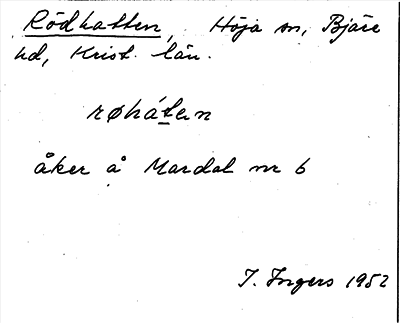 Rödhatten, Höja sn, Bjäre
hd, Krist. län.
røháten
åker å Mardal nr 6
I. Ingers 1952